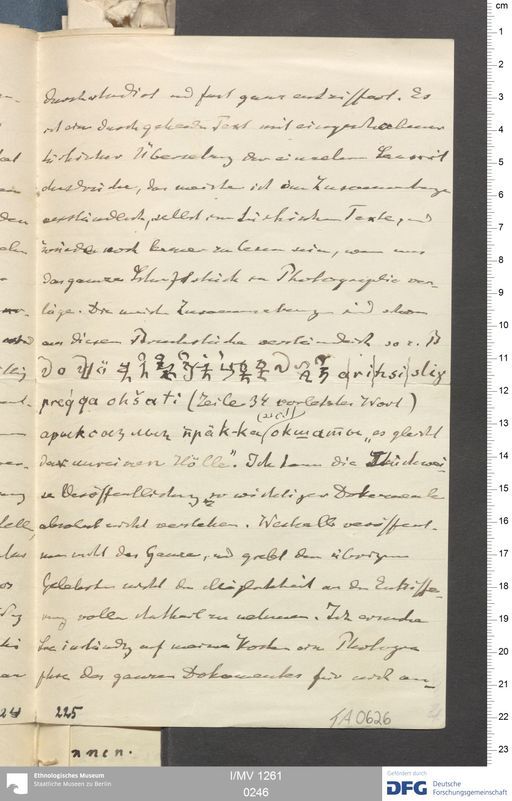 durchstudirt und fast ganz entziffert. Es
ist ein durchgehender Text mit eingeschobener
türkischer Übersetzung der einzelnen Sanscrit
ausdrücke, das meiste ist im Zusammenhange
verständlich, selbst im türkischen Texte, und
würde noch besser zu lesen sein, wenn uns
das ganze Schriftstück in Photographie vor-
läge. Die meisten Zusammensetzungen sind schon
aus diesem Bruchstücke verständlich so z. B.
ariḥsi slig
pregga okšati (Zeile 34 vorletztes Wort)
окшатти "es gleicht
der unreinen Hölle". Ich kann die Stückwei-
se Veröffentlichung so wichtiger Dokumente
absolut nicht verstehen. Weshalb veröffent-
man nicht das Ganze, und giebt den übrigen
Gelehrten nicht die Möglichkeit an der Entziffe-
rung vollen Antheil zu nehmen. Ich ersuche
Sie inständig auf meine Kosten eine Photogra
phie des ganzen Dokumentes für mich an-
225
TA 0626
nnen.
cm
1
2
3
4
5
6
7
8
9
10
11
12
13
14
15
16
17
18
19
20
21
22
23
Ethnologisches Museum
Staatliche Museen zu Berlin
I/MV 1261
0246
Gefördert durch
DFG Deutsche
Forschungsgemeinschaft